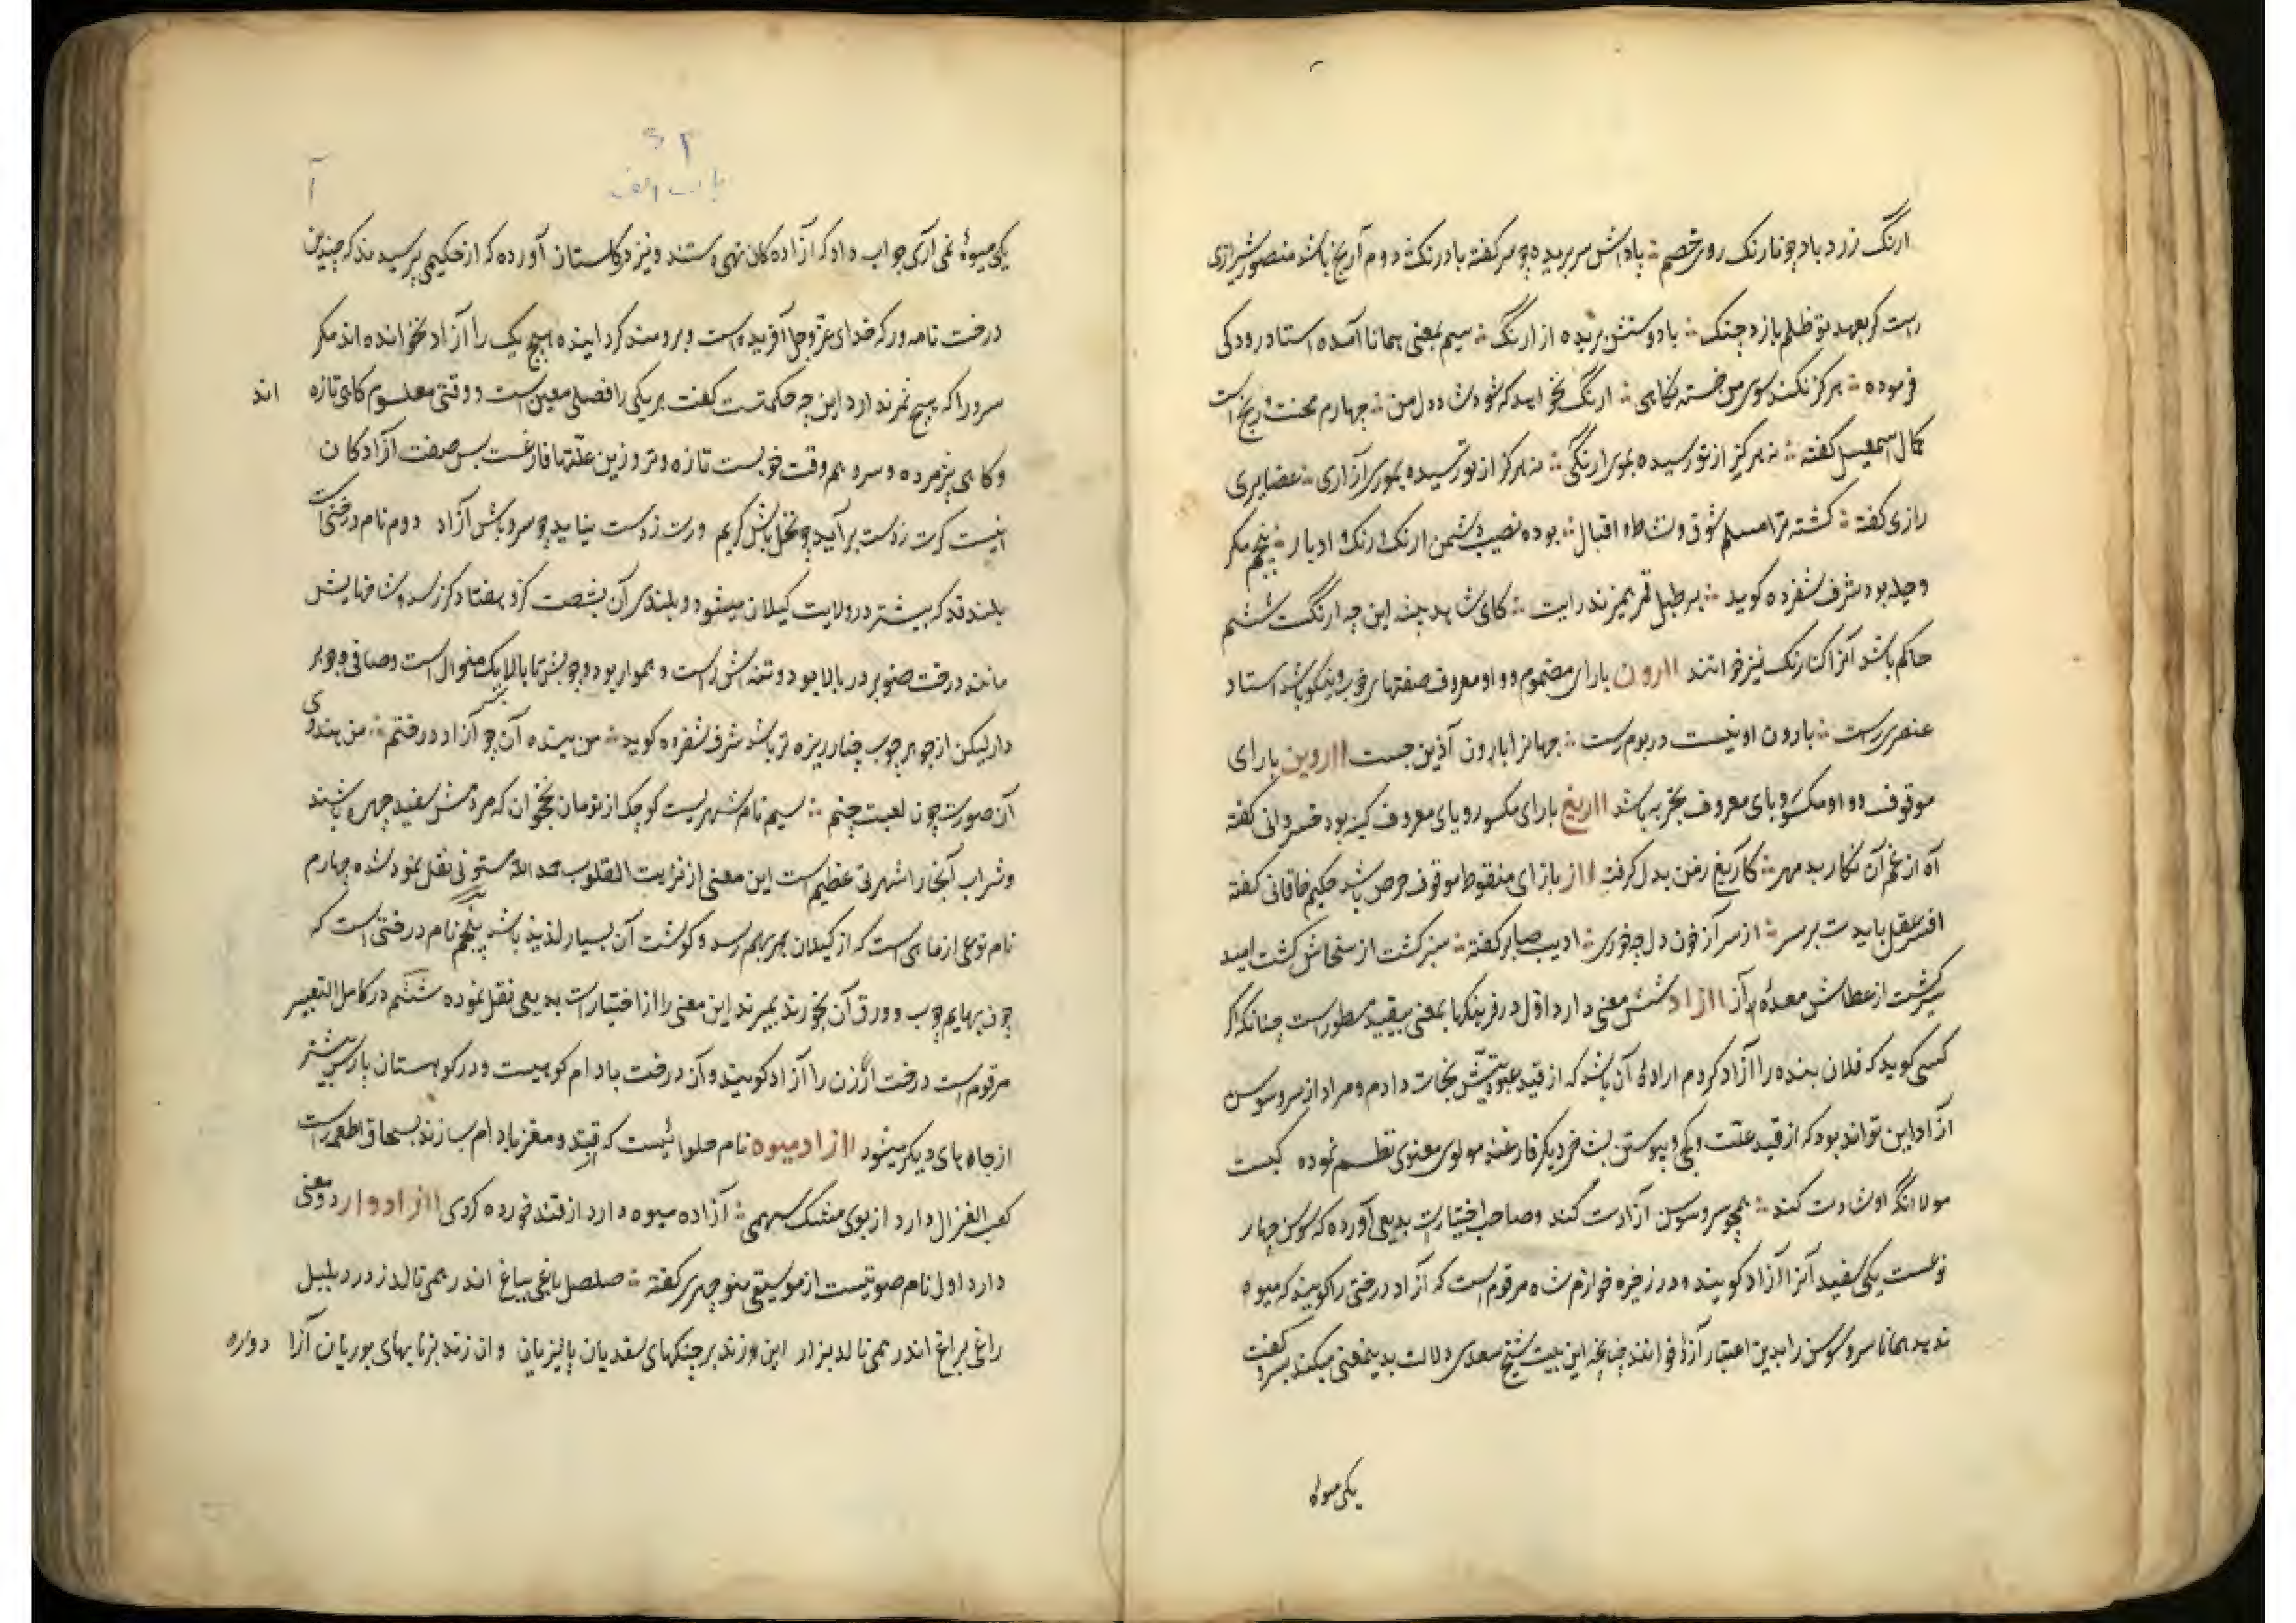 ارنگ زرد باد چو نارنک روی خصم ؞ بادش سر بریده چو سر کفته بادرنک ؞ دوم آرنج باشد منصور شیرازی
راست کر بعهد تو ظلم یازد چنک ؞ باد دستش بریده از ارنگ ؞ سیم بمعنی همانا آمده استاد رودکی
فرموده ؞ هرکز نکند سوی من خسته نکاهی ؞ ارنگ نخواهد که شود شاد دل من ؞ چهارم محنت و رنج است
کمال اسمعیل کفته ؞ نه هرکز از تو رسیده بموری ارنگی ؞ نه هرکز از تو رسیده بموری آزاری ؞ عضایری
رازی کفته ؞ کشته ترا مسلم شوق و نشاط و اقبال ؞ بوده نصیب دشمن ارنک و رنک و ادبار ؞ پنجم مکر
و حیله بود شرف شفرده کوید ؞ بر طبل قمر همیزند رایت ؞ کای شاهد این چه ارنگست ششم
حاکم باشد آنرا کنارنک نیز خوانند اارون بارای مضموم و واو معروف صفتهای خوب و نیکو باشد استاد
عنصری راست ؞ بارون او نیست در بوم رست ؞ جهانرا بارون آذین جست ااروین بارای
موقوف و واو مکسور و یای معروف تجربه باشد ااریغ بارای مکسور و یای معروف کینه بود خسروانی کفته
آه از غم آن نکار بد مهر ؞ کآریغ زمن بدل کرفت ااز بازای منقوط موقوف حرص باشد حکیم خاقانی کفته
افسر عقل بایدت بر سر ؞ از سر آز خون دل چه خوری ؞ ادیب صابر کفته ؞ سبز کشت از سخاش کشت امید
سیر کشت از عطاش معدهٔ آز ااز اد شش معنی دارد اول در فرهنکها بمعنی بیقید مسطور است چنانکه اگر
کسی کوید که فلان بنده را آزاد کردم اراده آن باشد که از قید عبودیتش نجات دادم و مراد از سرو و سوسن
آزاد این تواند بود که از قید علت و کجی و پیوستن بشاخ دیکر فارغند مولوی معنوی نظم نموده کیست
مولا آنکه او شادت کند ؞ همچو سرو و سوسن آزادت کند و صاحب اختیارات بدیعی آورده که سوسن چهار
نوعست یکی سفید آنرا آزاد کویند و در ذخیره خوارزم شاه مرقوم است که آزاد درختی را کویند که میوه
ندهد همانا سرو و سوسن را بدین اعتبار آزاد خوانند چنانچه این بیت شیخ سعدی دلالت بدینمعنی میکند بسرو کفت
یکی میوهٔ
۲
باب الف
آ
یکی میوهٔ نمی آری جواب داد که آزاده کان تهی دستند و نیز در کلستان آورده که از حکیمی پرسیدند که چندین
درخت نامور که خدای عز و جل آفریده است و برومند کردانیده هیچ یک را آزاد نخوانده اند مکر
سرو را که هیچ ثمر ندارد این چه حکمتست کفت هر یکی را فصلی معین است و وقتی معلوم کاهی تازه اند
و کاهی پژمرده و سرو همه وقت خوبست تازه و تر و زین علتها فارغست پس صفت آزادکان
اینست کرت ز دست بر آید چو نخل باش کریم ورت ز دست نیاید چو سرو باش آزاد دوم نام درختی است
بلند قد که بیشتر در ولایت کیلان میشود و بلندی آن بشصت کز و هفتاد کز رسد و شاخهایش
مانند درخت صنوبر در بالا بود و تنه اش راست و هموار بود و چوبش تا بالا بیک منوال است و صافی و جوهر
دار لیکن از جوهر چوب چنار ریزه تر باشد شرف شفرده کوید ؞ من بنده آن چو آزاد درختم ؞ من هندوی
آن صورت چون لعبت چینم ؞ سیم نام شهریست کوچک از تومان نخجوان که مردمش سفید چهره باشند
و شراب آنجا را شهرتی عظیم است این معنی از نزهت القلوب حمد الله مستوفی نقل نموده شده چهارم
نام نوعی از ماهی است که از کیلان بهم رسد و کوشت آن بسیار لذیذ باشد پنجم نام درختی است که
چون بهایم چوب و ورق آن بخورند بمیرند این معنی را از اختیارات بدیعی نقل نموده ششم در کامل التعبیر
مرقوم است درخت ارژن را آزاد کویند و آن درخت بادام کوهیست و در کوهستان پارس بیشتر
از جاهای دیکر میشود اازاد میوه نام حلوائیست که از قند و مغز بادام سازند بسحاق اطعمه راست
کعب الغزال دارد از بوی مشک سهمی ؞ آزاده میوه دارد از قند خورده کردی اازاد وار دو معنی
دارد اول نام صوتیست از موسیقی منوچهری کفته ؞ صلصل باغی بباغ اندر همی نالد بدرد بلبل
راغی براغ اندر همی نالد بزار این زند بر چنکهای سغدیان پالیزبان وان زند بر نایهای لوریان آزا دواره